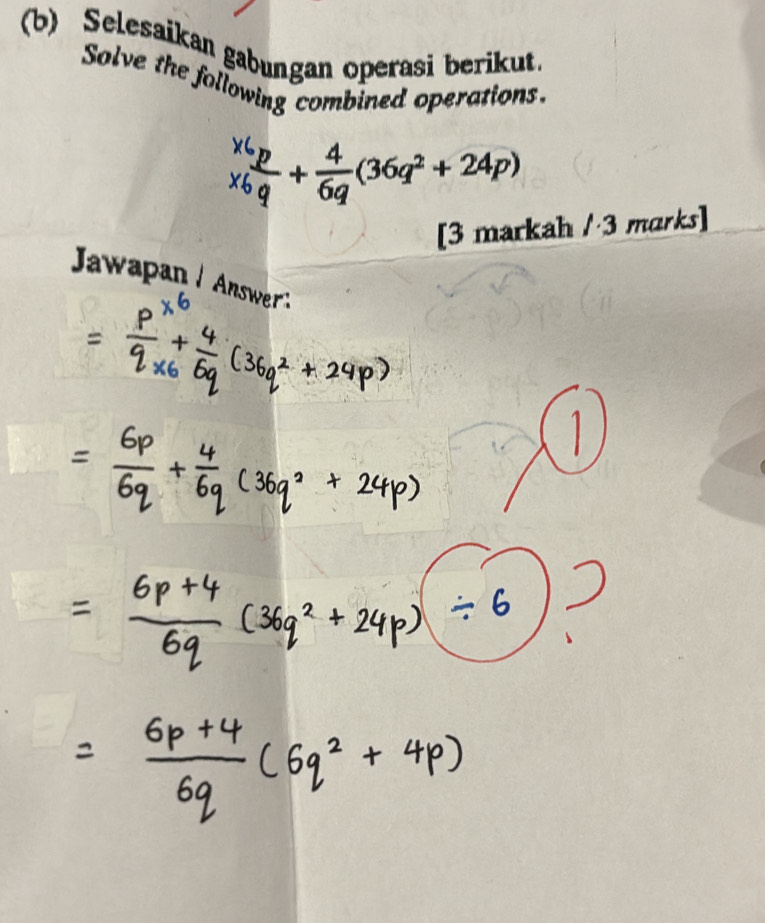 (b) Selesaikan gabungan operasi berikut.
Solve the following combined operations.
×6 p/×6 q + 4/6q (36q² + 24p)
[3 markah / 3 marks]
Jawapan / Answer:
= p ×6/q ×6 + 4/6q (36q² + 24p)
= 6p/6q + 4/6q (36q² + 24p)
1
= 6p+4/6q (36q² + 24p) ÷ 6 ?
= 6p+4/6q (6q² + 4p)